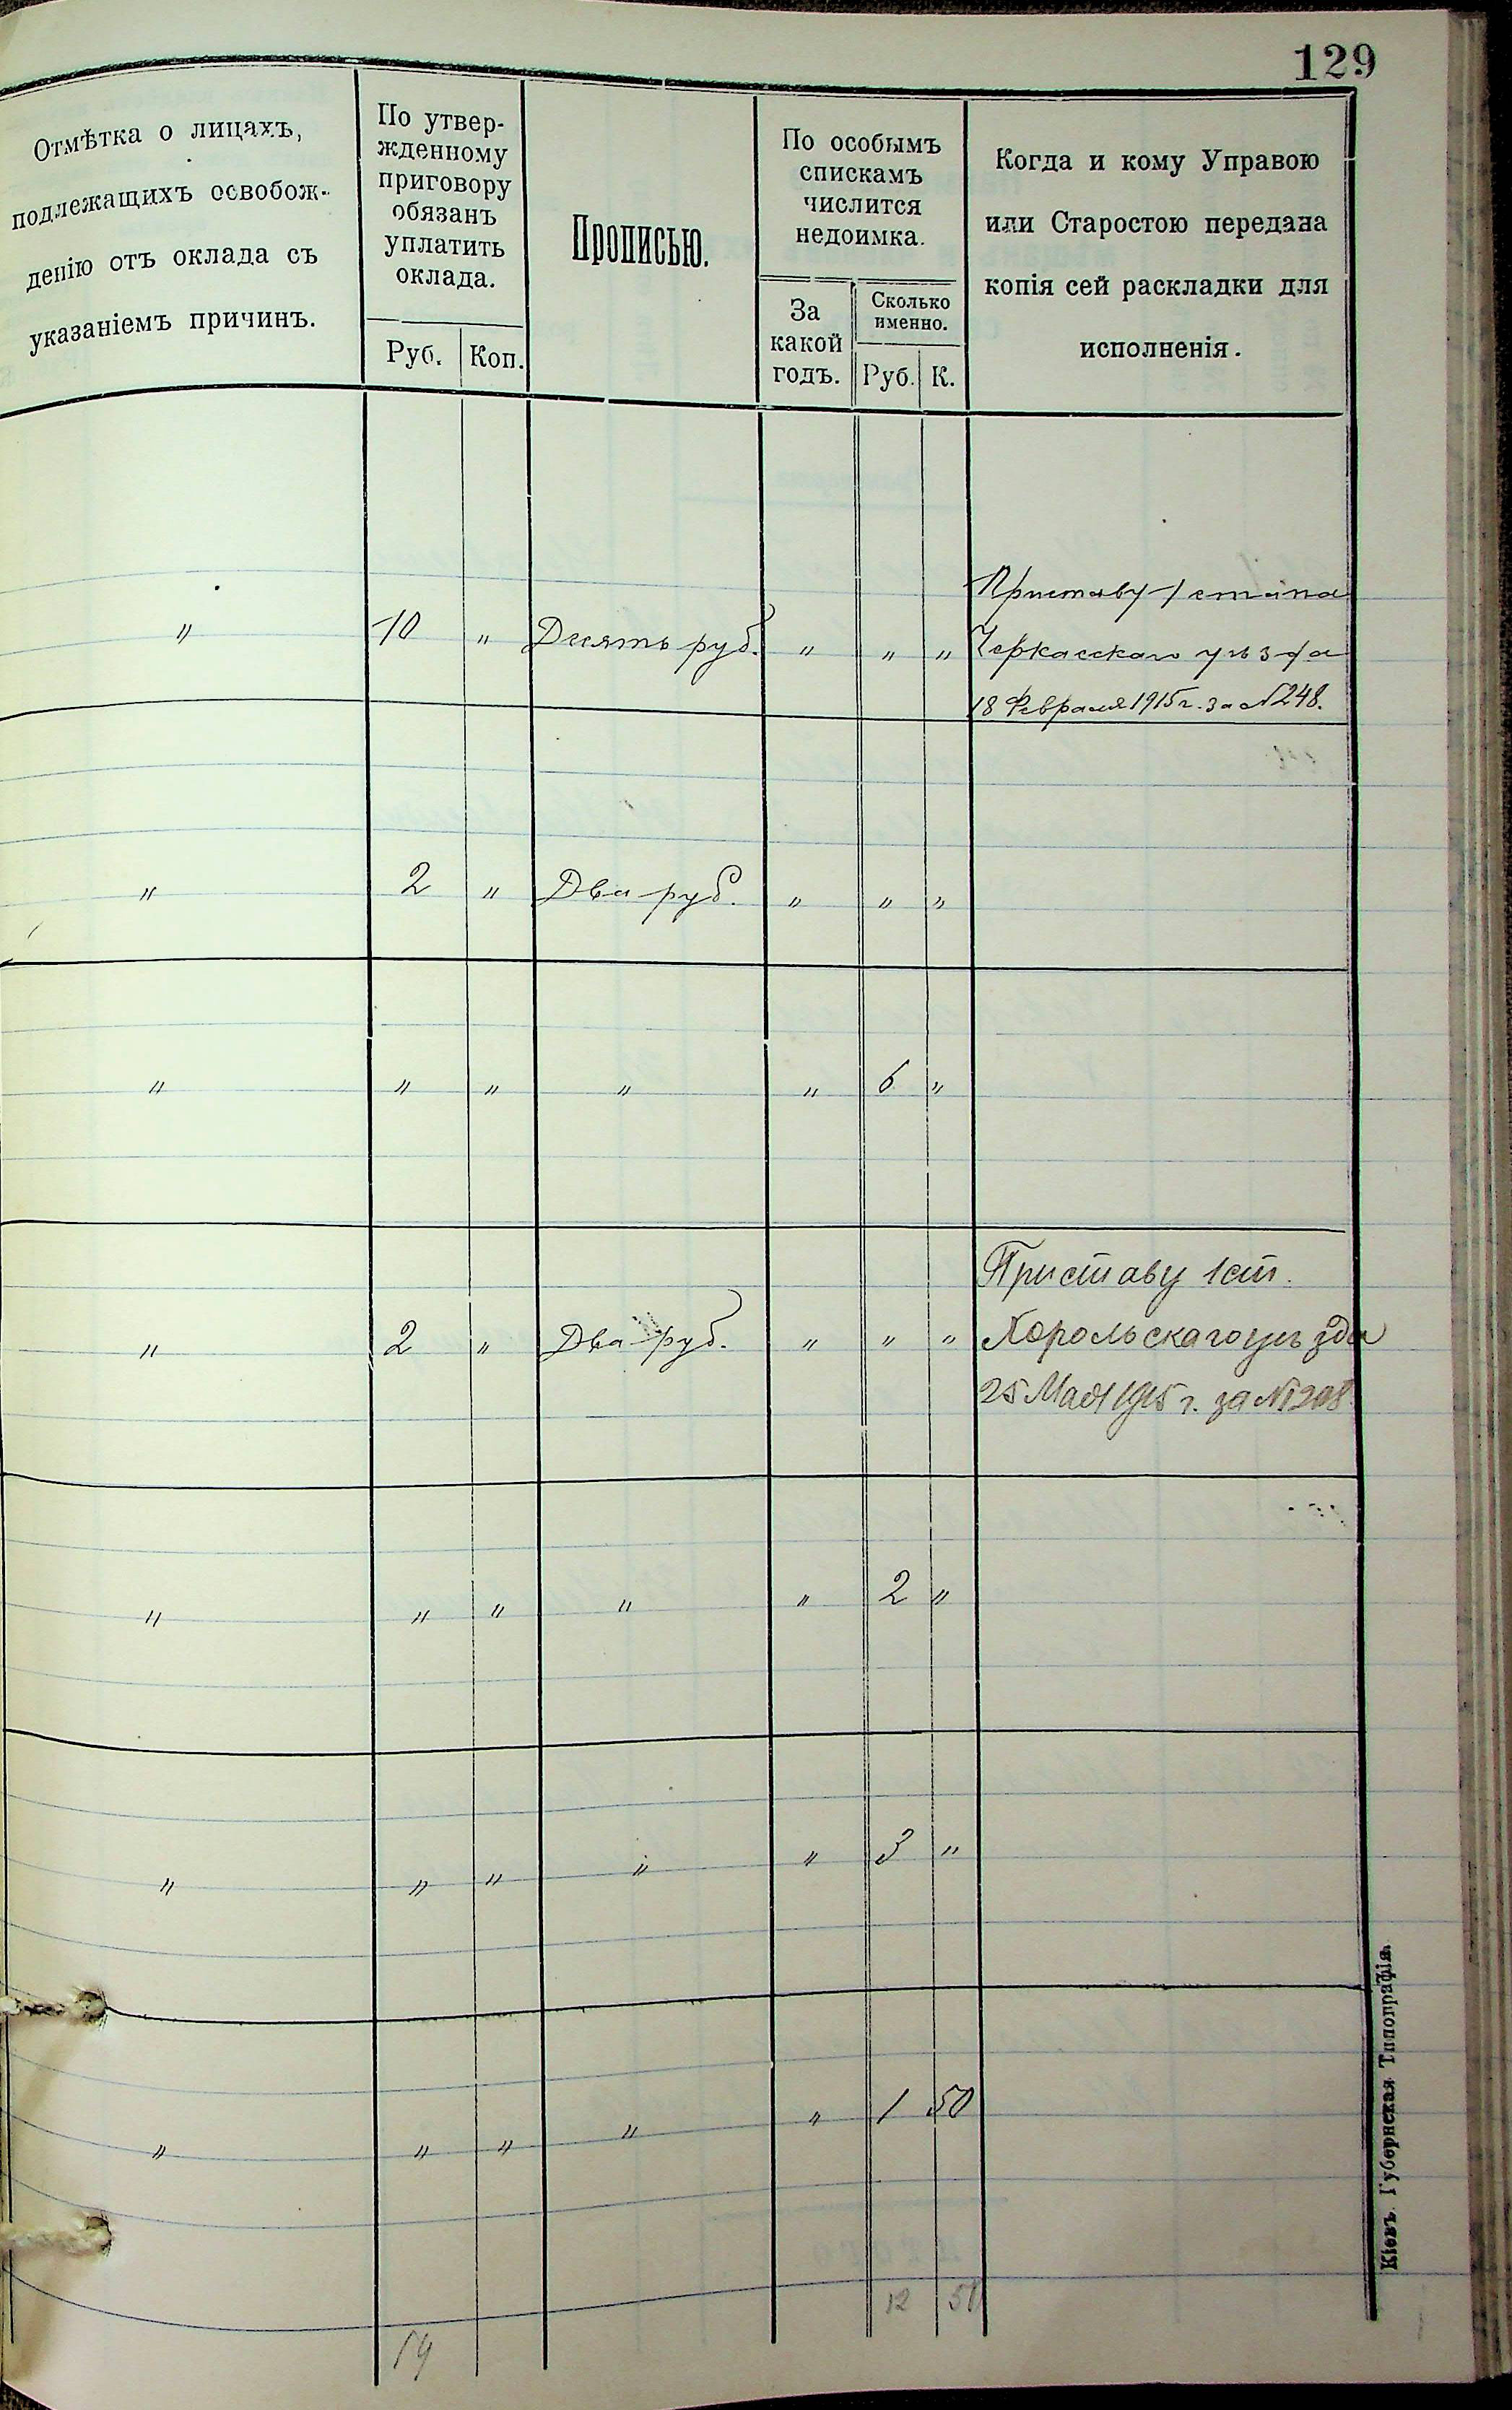 129
Отмѣтка о лицахъ,
подлежащихъ освобож-
денію отъ оклада съ
указаніемъ причинъ.
По утвер-
жденному
приговору
обязанъ
уплатить
оклада.
Руб. Коп.
Прописью.
По особымъ
спискамъ
числится
недоимка.
За
какой
годъ.
Сколько
именно.
Руб. К.
Когда и кому Управою
или Старостою передана
копія сей раскладки для
исполненія.
Приставу 1 стана
" 10 " Десять руб. " " " Черкасскаго уѣзда
18 Февраля 1915 г. за № 248.
" 2 " Два руб. " " "
" " " " " 6 "
Приставу 1 ст.
" 2 " Два руб. " " " Хорольскаго уѣзда
25 Мая 1915 г. за № 1208
" " " " " 2 "
" " " " " 3 "
" " " " " 1 50
12 50
14
Кіевъ. Губернская Типографія.